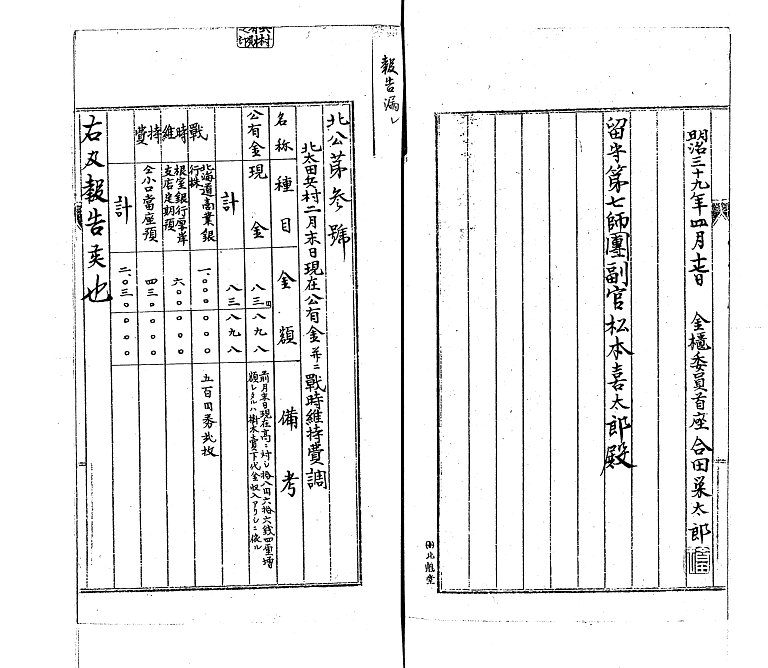 明治三十九年四月十七日 金櫃委員首座 合田栄太郎
留守第七師團副官松本喜太郎殿
報告漏レ
北公第参號
北太田兵村二月末日現在公有金並ニ戰時維持費調
名称 種目 金額 備考
公有金 現金 八三八九八
前月末日現在高ニ対シ拾八円六拾六銭四厘増
額シタルハ樹木賣下代金収入アリシニ依ル
計 八三八九八
戰時維持費
北海道商業銀行株 一、〇〇〇〇〇〇 五百円券弐枚
根室銀行厚岸支店定期預 六〇〇〇〇〇
仝小口當座預 四三〇〇〇〇
計 二、〇三〇〇〇〇
右及報告矣也